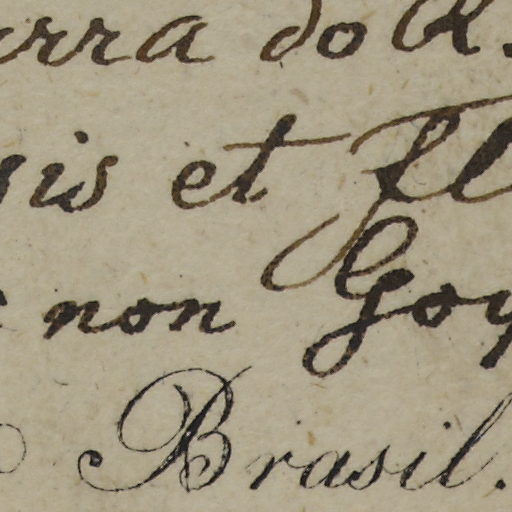 rra do R.
gis et Fl
non Goy
Brasil.